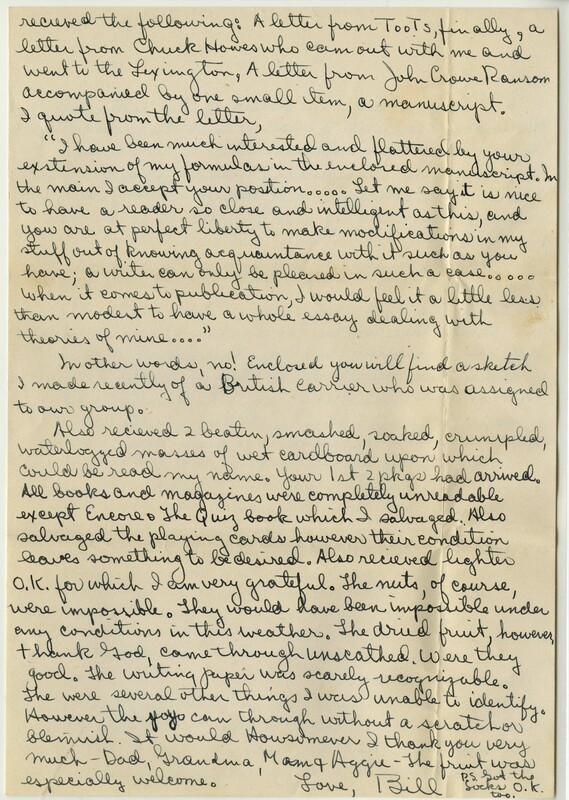 recieved the following: A letter from TooTs, finally, a
letter from Chuck Howes who cam out with me and
went to the Lexington, A letter from John Crowe Ransom
accompanied by one small item, a manuscript.
I quote from the letter,
"I have been much interested and flattered by your
exstension of my formulas in the enclosed manuscript. In
the main I accept your position..... Let me say it is nice
to have a reader so close and intelligent as this, and
you are at perfect liberty to make modifications in my
stuff out of knowing acquaintance with it such as you
have; a writer can only be pleased in such a case.....
when it comes to publication, I would feel it a little less
than modest to have a whole essay dealing with
theories of mine...."
In other words, no! Enclosed you will find a sketch
I made recently of a British Carrier who was assigned
to our group.
Also recieved 2 beatin, smashed, soaked, crumpled,
waterlogged masses of wet cardboard upon which
could be read my name. Your 1st 2 pkgs had arrived.
All books and magazines were completely unreadable
except Encore & The Quiz book which I salvaged. Also
salvaged the playing cards however their condition
leaves something to be desired. Also recieved lighter
O.K. for which I am very grateful. The nuts, of course,
were impossible. They would have been impossible under
any conditions in this weather. The dried fruit, however,
thank God, came through unscathed. Were they
good. The writing paper was scarely recognizable.
The were several other things I was unable to identify.
However the yoyo can through without a scratch or
blemish. It would Howsomever I thank you very
much - Dad, Grandma, Mama, Aggie - The fruit was
especially welcome. Love, Bill
P.S. Got the
socks O.K.
too.